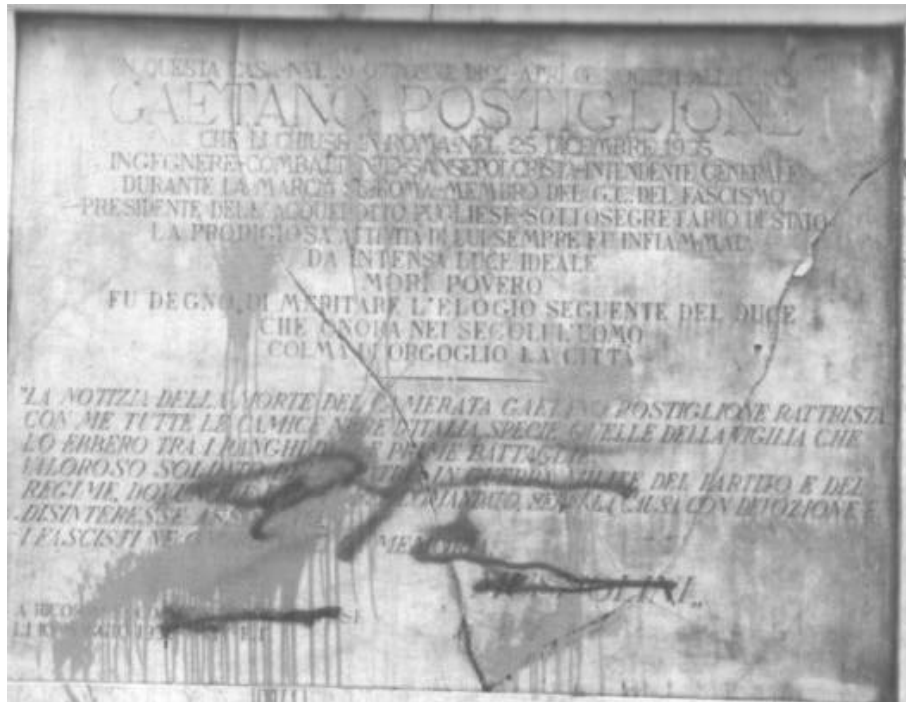 IN QUESTA CASA NEL
GAETANO POSTIGLIONE
CHE LI CHIUSE IN ROMA NEL 25 DICEMBRE 1935
INGEGNERE·COMBATTENTE·SANSEPOLCRISTA·INTENDENTE GENERALE
DURANTE LA MARCIA SU ROMA·MEMBRO DEL G.C. DEL FASCISMO
PRESIDENTE DELL'ACQUEDOTTO PUGLIESE·SOTTOSEGRETARIO DI STATO·
LA PRODIGIOSA ATTIVITÀ DI LUI SEMPRE FU INFIAMMATA
DA INTENSA LUCE IDEALE
MORÌ POVERO
FU DEGNO DI MERITARE L'ELOGIO SEGUENTE DEL DUCE
CHE ONORA NEI SECOLI L'UOMO
COLMA DI ORGOGLIO LA CITTÀ
"LA NOTIZIA DELLA MORTE DEL CAMERATA GAETANO POSTIGLIONE RATTRISTA
CON ME TUTTE LE CAMICE NERE D'ITALIA SPECIE QUELLE DELLA VIGILIA CHE
LO EBBERO TRA I RANGHI PRIME BATTAGLIE
VALOROSO SOLDATO IN DEL PARTITO E DEL
REGIME, COMANDATO, SERVÌ LA CAUSA CON DEVOZIONE E
DISINTERESSE
I FASCISTI NE
MUSSOLINI„
A